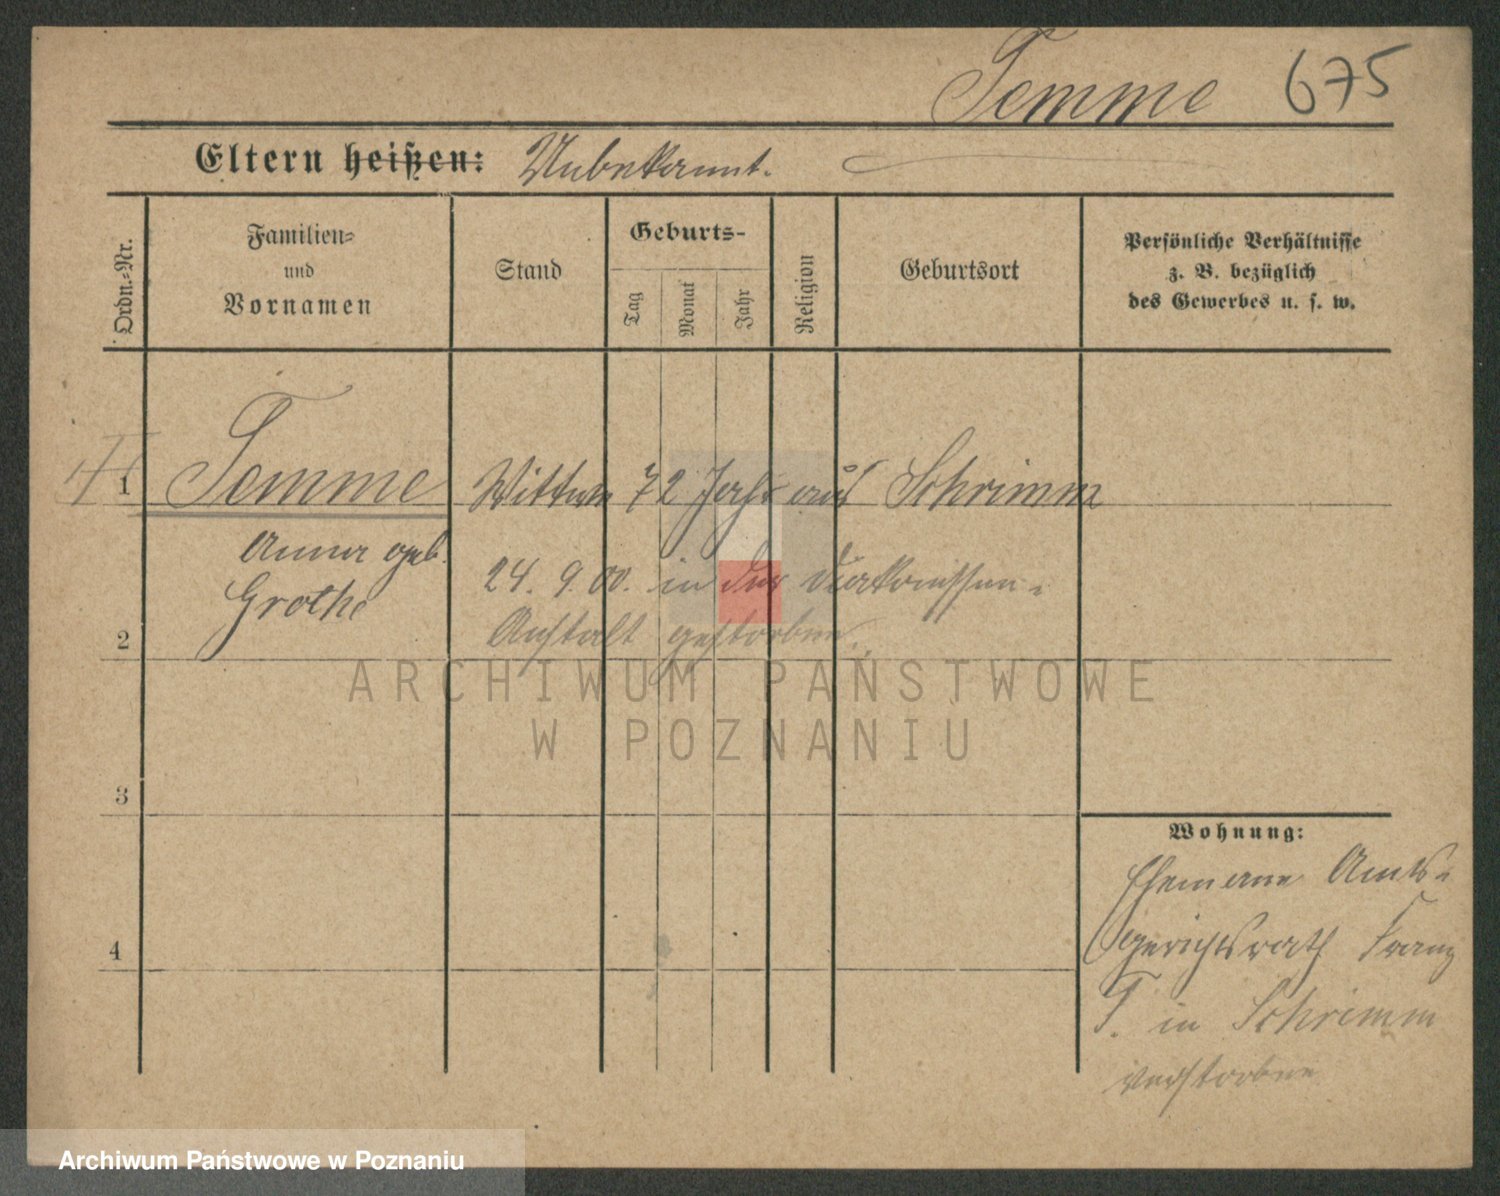 Temme 675
Eltern heißen: Unbekannt.
Ordn.-Nr.
Familien-
und
Vornamen
Stand
Geburts-
Tag
Monat
Jahr
Religion
Geburtsort
Persönliche Verhältnisse
z. B. bezüglich
des Gewerbes u. s. w.
1 Temme Wittwe 72 Jahr aus Schrimm
Anna geb.
Grothe
24. 9. 00. in der Diakonissen-
2 Anstalt gestorben.
ARCHIWUM PAŃSTWOWE
W POZNANIU
3
Wohnung:
Ehemann Amts-
gerichtsrath Franz
4
T. in Schrimm
verstorben
Archiwum Państwowe w Poznaniu